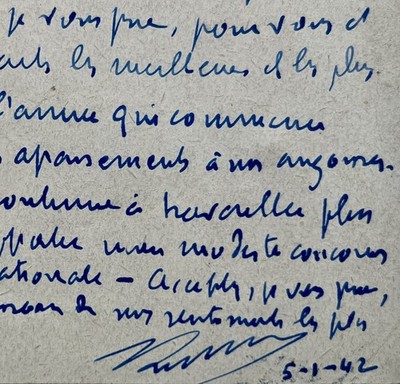 je vous prie, pour vous et
les meilleurs et les plus
l'année qui commence
apaisements à nos angoisses.
continue à travailler plus
mon modeste concours
nationale — Acceptez, je vous prie,
de mes sentiments les plus
5-1-42